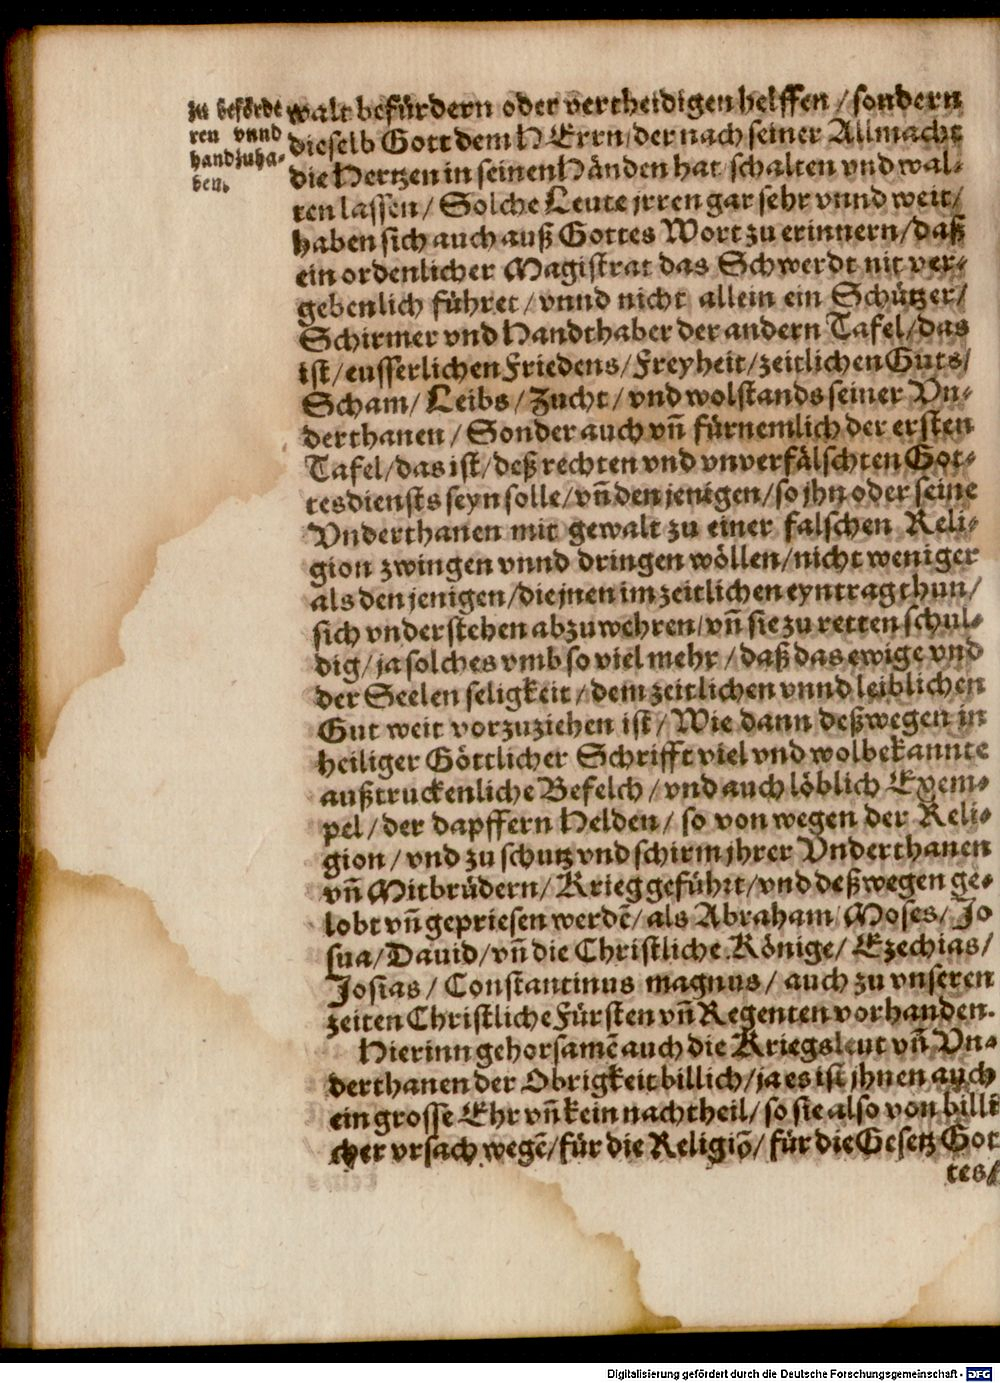 zu beförde
ren vnnd
handzuha-
ben.
walt befürdern oder vertheidigen helffen / sondern
dieselb Gott dem HErrn / der nach seiner Allmacht
die Hertzen in seinen Händen hat / schalten vnd wal-
ten lassen / Solche Leute jrren gar sehr vnnd weit /
haben sich auch auß Gottes Wort zu erinnern / daß
ein ordenlicher Magistrat das Schwerdt nit ver-
gebenlich führet / vnnd nicht allein ein Schützer /
Schirmer vnd Handthaber der andern Tafel / das
ist / eusserlichen Friedens / Freyheit / zeitlichen Guts /
Scham / Leibs / Zucht / vnd wolstands seiner Vn-
derthanen / Sonder auch vñ fürnemlich der ersten
Tafel / das ist / deß rechten vnd vnverfälschten Got-
tesdiensts seyn solle / vñ den jenigen / so jhn oder seine
Vnderthanen mit gewalt zu einer falschen Reli-
gion zwingen vnnd dringen wöllen / nicht weniger
als den jenigen / die jnen im zeitlichen eyntrag thun /
sich vnderstehen abzuwehren / vñ sie zu retten schul-
dig / ja solches vmb so viel mehr / daß das ewige vnd
der Seelen seligkeit / dem zeitlichen vnnd leiblichen
Gut weit vorzuziehen ist / Wie dann deßwegen in
heiliger Göttlicher Schrifft viel vnd wolbekannte
außtruckenliche Befelch / vnd auch löblich Exem-
pel / der dapffern Helden / so von wegen der Reli-
gion / vnd zu schutz vnd schirm jhrer Vnderthanen
vñ Mitbrüdern / Krieg geführt / vnd deßwegen ge-
lobt vñ gepriesen werdẽ / als Abraham / Moses / Jo
sua / Dauid / vñ die Christliche Könige / Ezechias /
Josias / Constantinus magnus / auch zu vnseren
zeiten Christliche Fürsten vñ Regenten vorhanden.
Hierinn gehorsamẽ auch die Kriegsleut vñ Vn-
derthanen der Obrigkeit billich / ja es ist jhnen auch
ein grosse Ehr vñ kein nachtheil / so sie also von billi
cher vrsach wegẽ / für die Religiõ / für die Gesetz Got
tes /
Digitalisierung gefördert durch die Deutsche Forschungsgemeinschaft - DFG